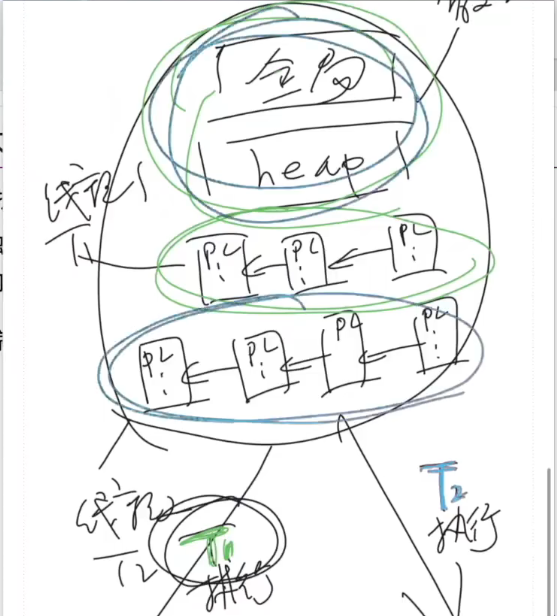 全局
heap
线程1
T1
PC
PC
PC
PC
PC
PC
PC
线程2
T2
T1
执行
T2
执行